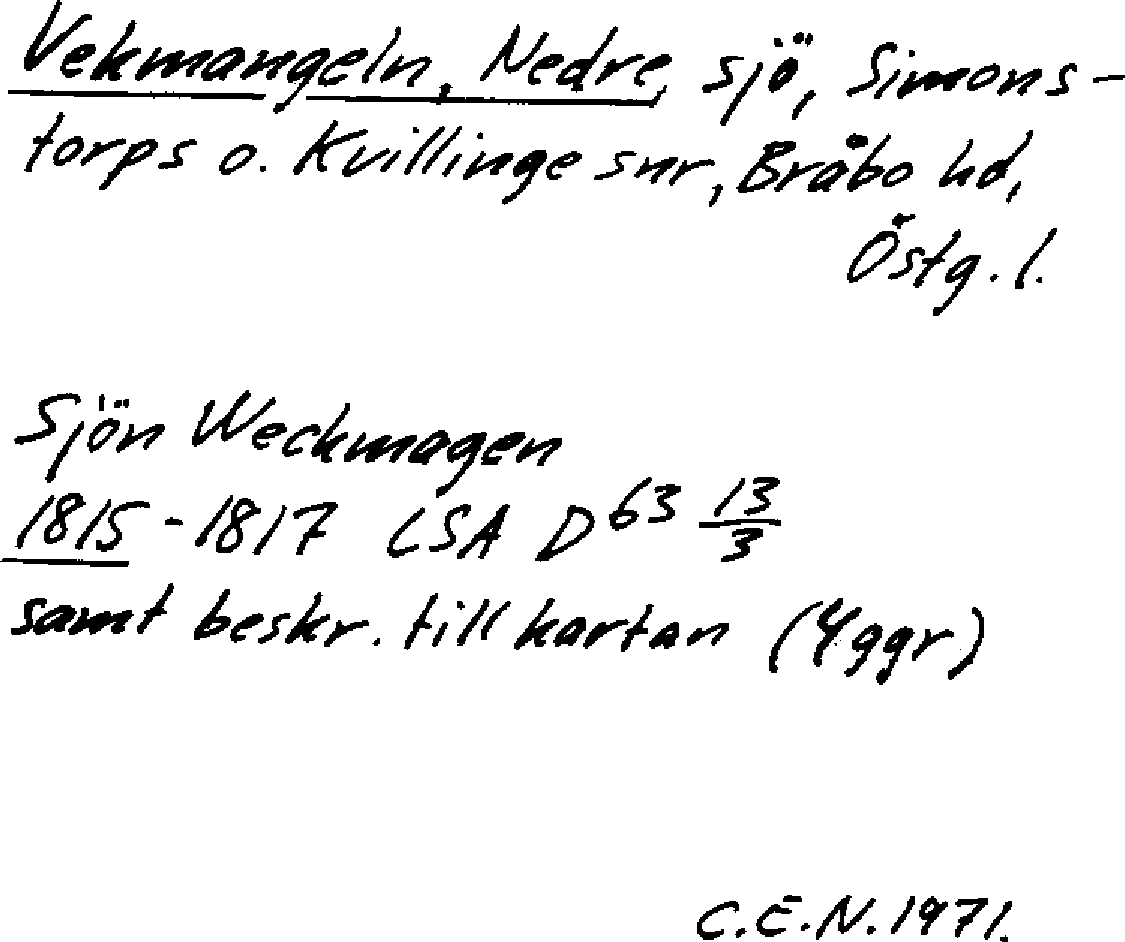 Vekmangeln, Nedre, sjö, Simons-
torps o. Kvillinge snr, Bråbo hd,
Östg. l.
Sjön Weckmagen
1815-1817 LSA D63 13/3
samt beskr. till kartan (4ggr)
C.E.N. 1971.